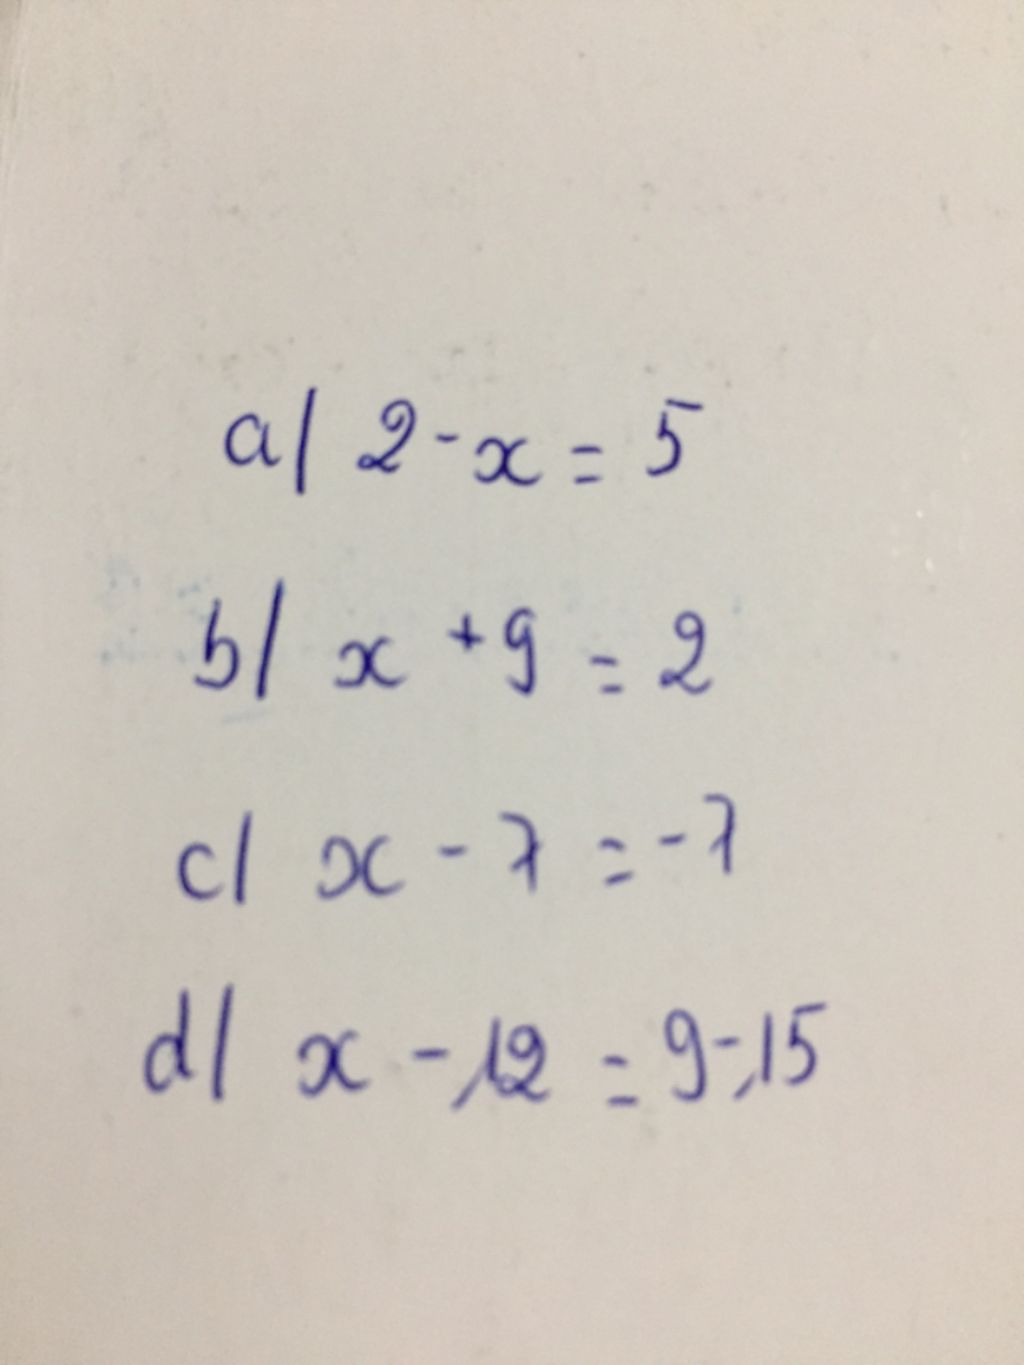 a/ 2-x = 5
b/ x + 9 = 2
c/ x - 7 = -7
d/ x - 12 = 9-15